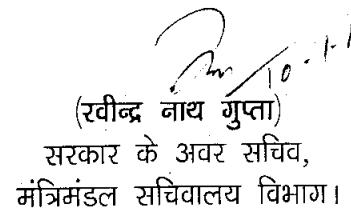 10.1.1
(रवीन्द्र नाथ गुप्ता)
सरकार के अवर सचिव,
मंत्रिमंडल सचिवालय विभाग।